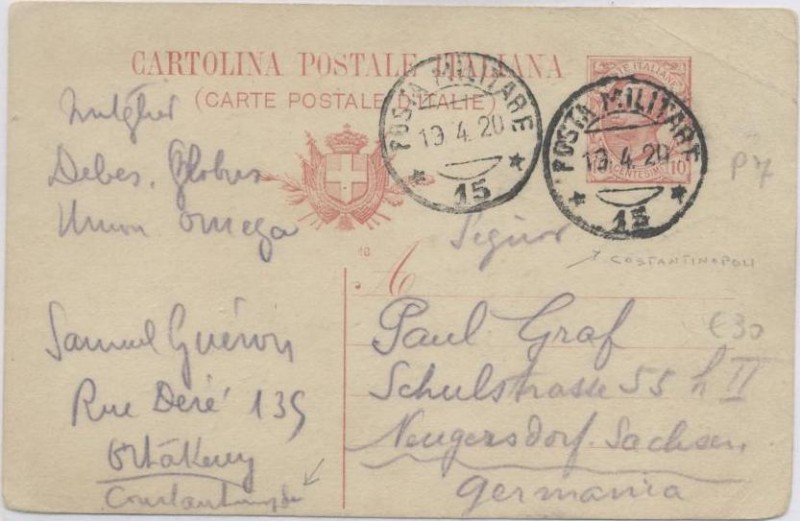 CARTOLINA POSTALE ITALIANA
(CARTE POSTALE D'ITALIE)
POSTA MILITARE
19.4.20
15
POSTA MILITARE
19.4.20
15
TE ITALIANE
10
CENTESIMI
P 7
Mitglied
Debes, Globus
Union Omega
18
Signor
COSTANTINOPOLI
A
Paul Graf
Schulstrasse 55 h II
Neugersdorf. Sachsen
Germania
€30
Samuel Guéron
Rue Déré 139
Ortakeuy
Constantinople